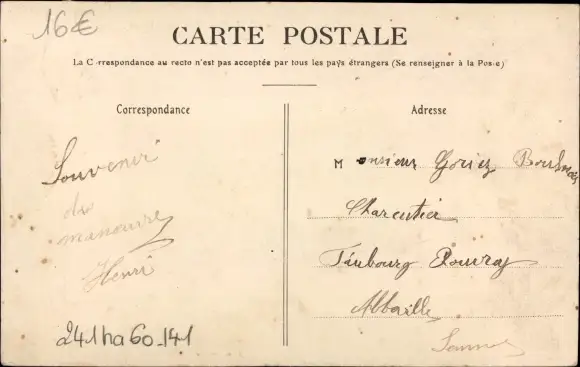 16€
CARTE POSTALE
La Correspondance au recto n'est pas acceptée par tous les pays étrangers (Se renseigner à la Poste)
Correspondance
Adresse
Souvenir
du
manouvre
Henri
Monsieur
Charcutier
Faubourg Rouvroy
Abbeville
Somme
241ha60-141